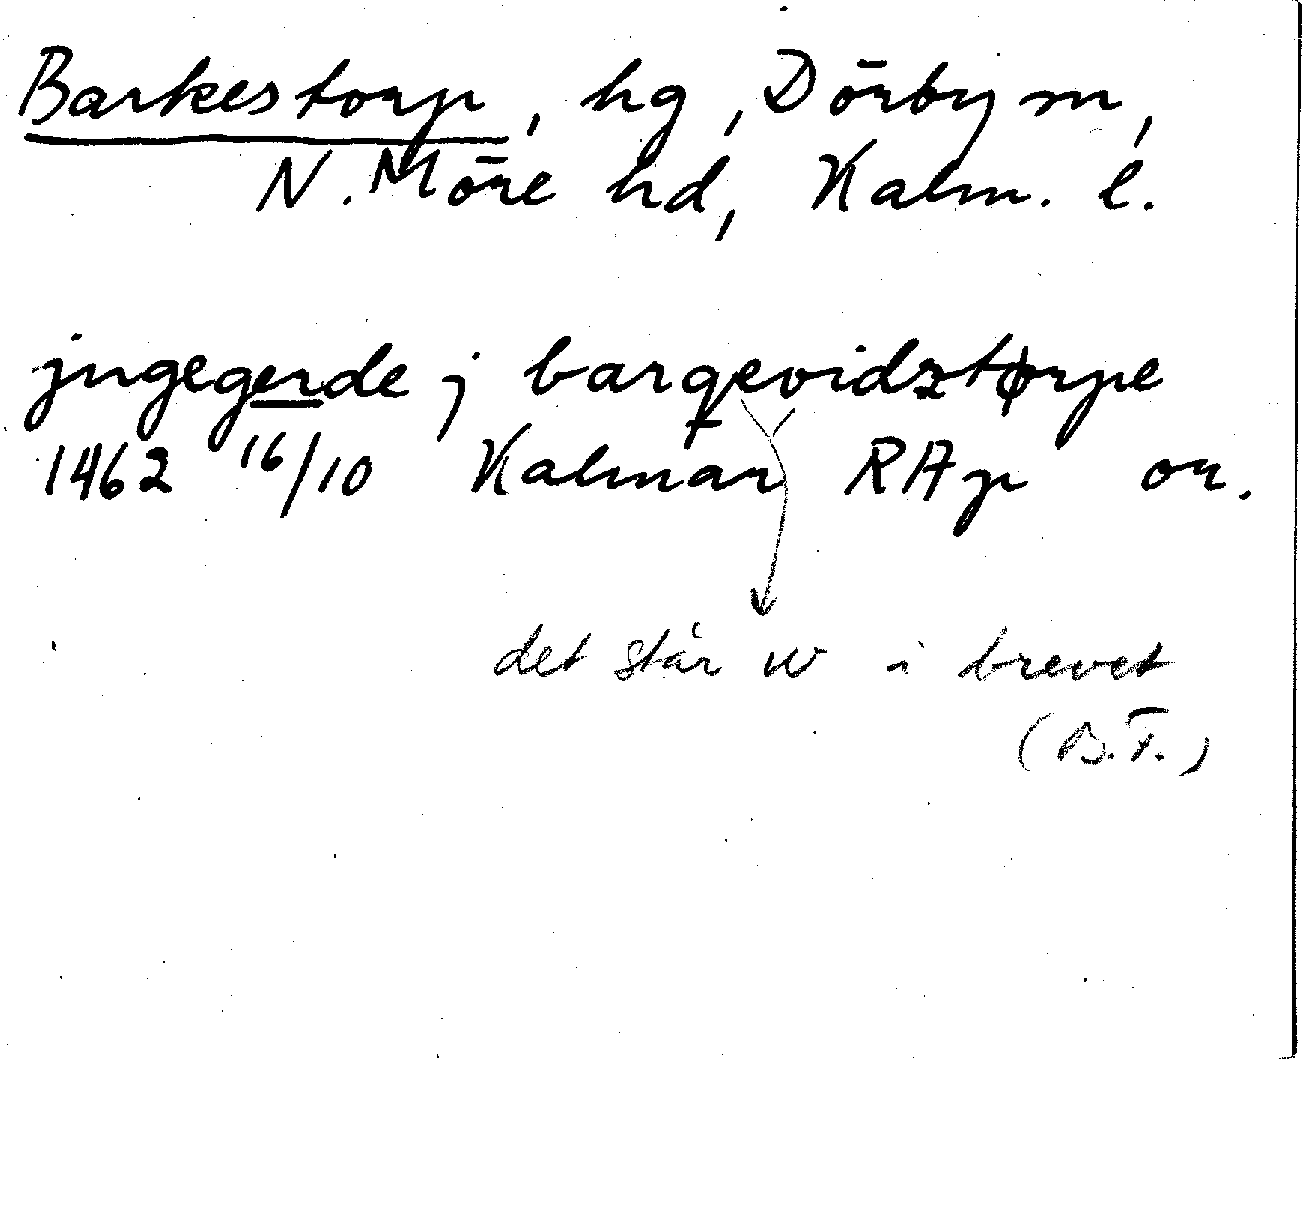 Barkestorp, hg, Dörby sn,
N. Möre hd, Kalm. l.
jngegerde j barqevidztørpe
1462 16/10 Kalmar RAp or.
det står w i brevet
(B.F.)